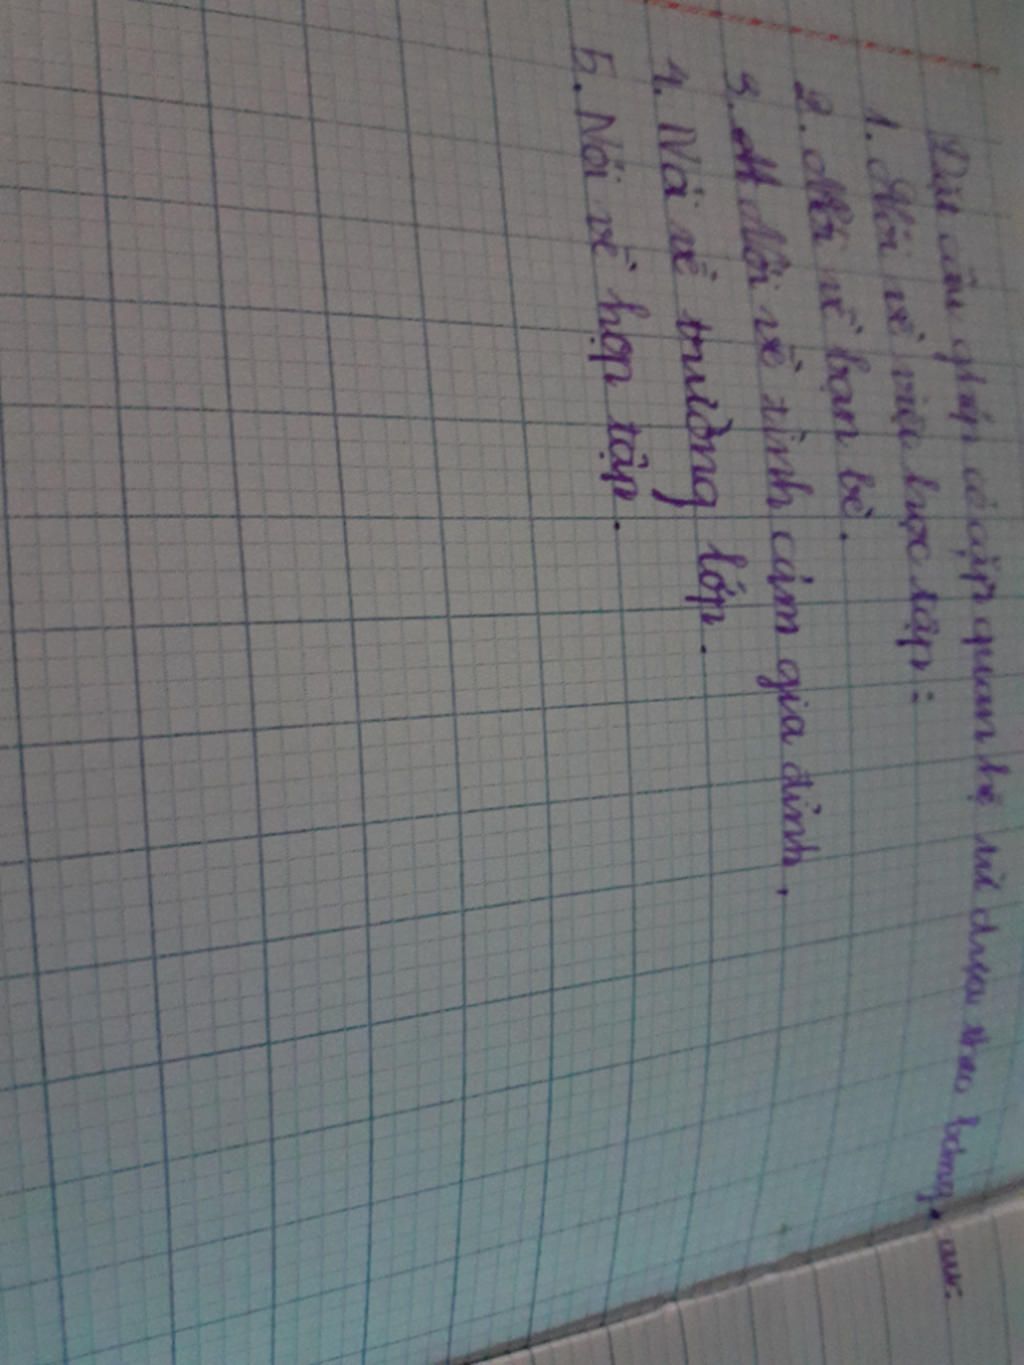 Đặt câu ghép có cặp quan hệ từ dựa theo
1. Nói về việc học tập:
2. Nói về bạn bè.
3. Nói về tình cảm gia đình.
4. Nói về trường lớp.
5. Nói về hợp tập.